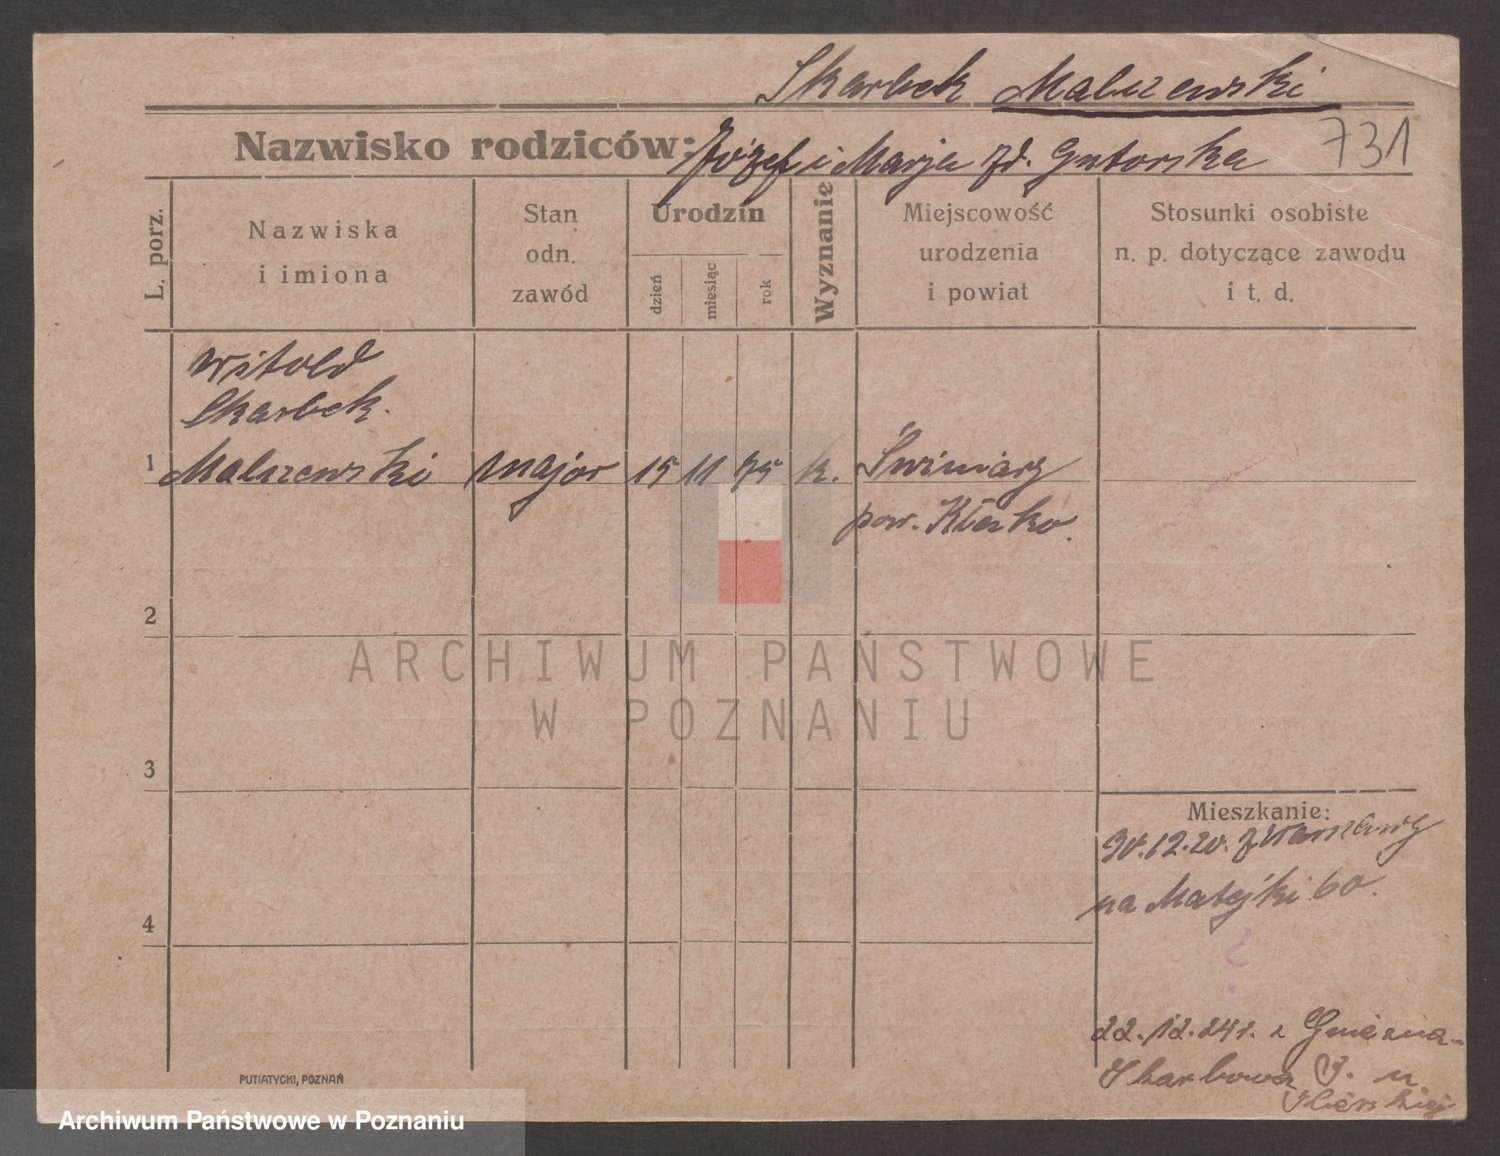 Skarbek Malszewski
Nazwisko rodziców: Józef i Marja zd. Gutorska 731
L. porz.
Nazwiska
i imiona
Stan
odn.
zawód
Urodzin
dzień
miesiąc
rok
Wyznanie
Miejscowość
urodzenia
i powiat
Stosunki osobiste
n. p. dotyczące zawodu
i t. d.
Witold
Skarbek.
1 Malszewski major 15 11 75 k. Świniary
pow. Kłecko.
2
ARCHIWUM PAŃSTWOWE
W POZNANIU
3
Mieszkanie:
30.12.20. z Warszawy
na Matejki 60.
4
?
22.12.24 r. z Gniezna-
Skarbowa 3. u
PUTIATYCKI, POZNAŃ
Archiwum Państwowe w Poznaniu